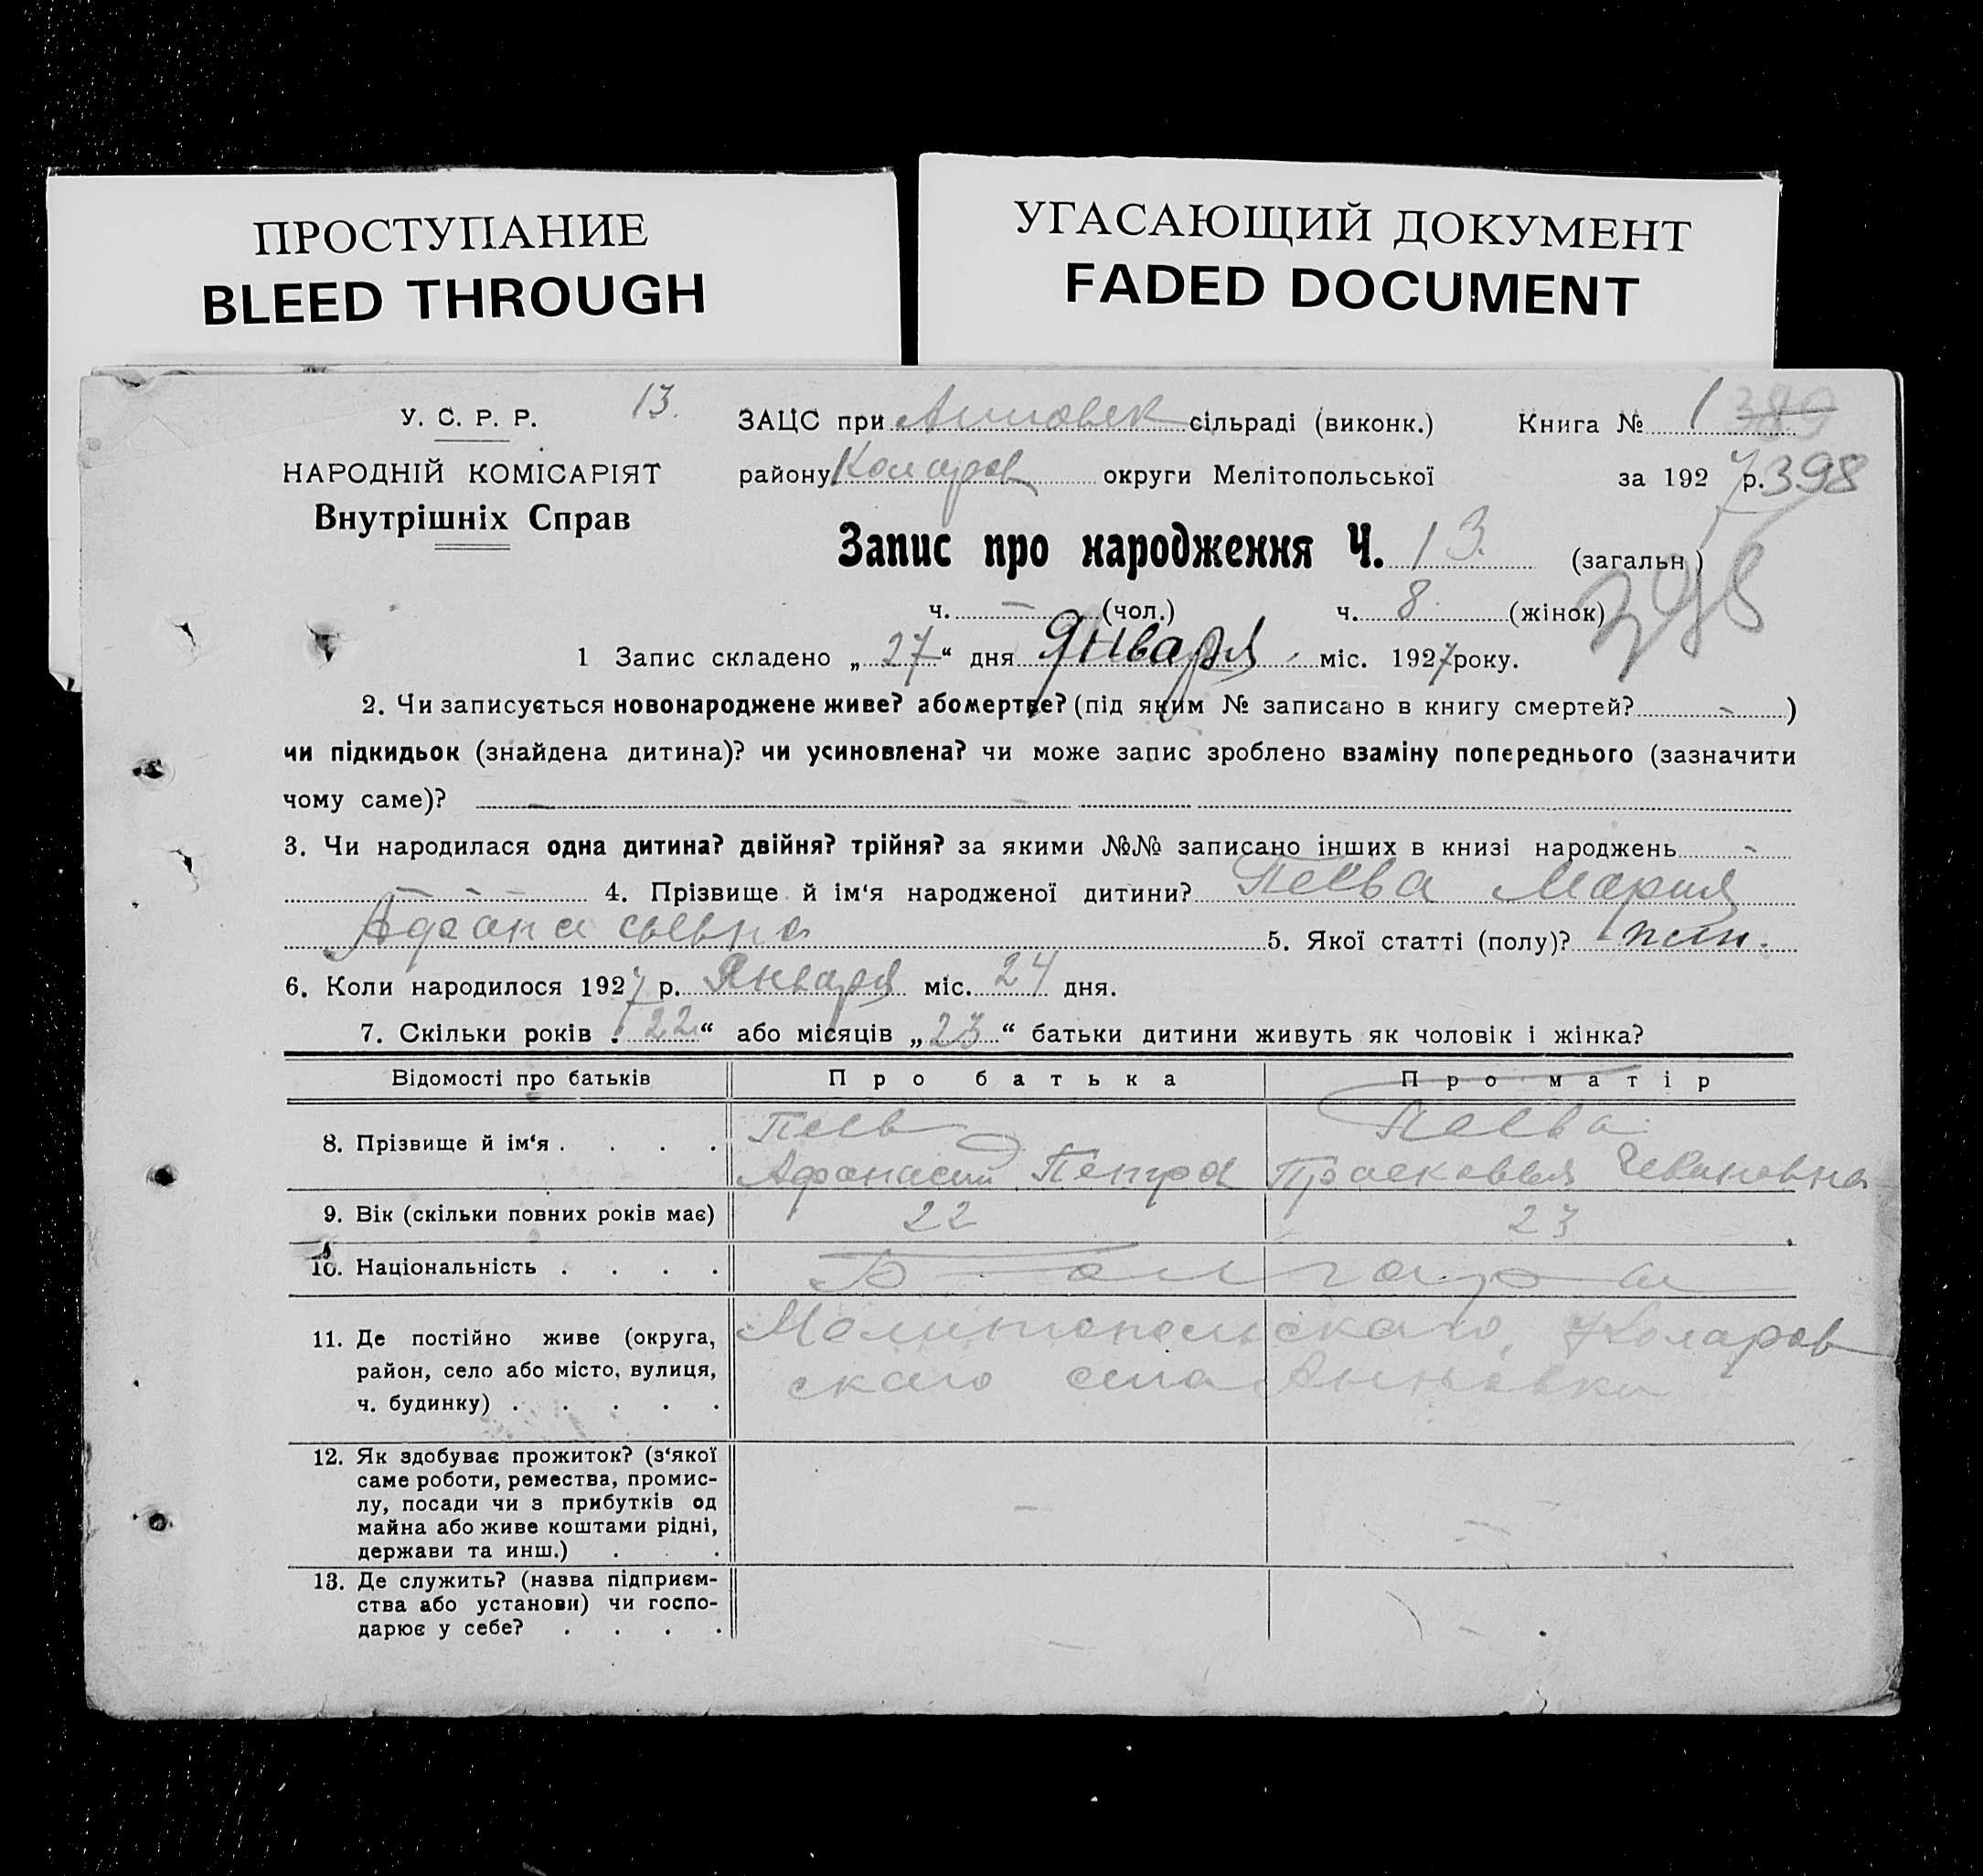 ПРОСТУПАНИЕ
BLEED THROUGH
УГАСАЮЩИЙ ДОКУМЕНТ
FADED DOCUMENT
У. С. Р. Р.
13.
НАРОДНІЙ КОМІСАРІЯТ
Внутрішніх Справ
ЗАЦС при сільраді (виконк.) Книга № 1 389
району Коларов округи Мелітопольської за 1927 р. 398
Запис про народження Ч. 13. (загальн)
398
ч. — (чол.) ч. 8 (жінок)
1 Запис складено „27“ дня Января міс. 1927 року.
2. Чи записується новонароджене живе? або мертве? (під яким № записано в книгу смертей? - )
чи підкидьок (знайдена дитина)? чи усиновлена? чи може запис зроблено взаміну попереднього (зазначити
чому саме)? — -
3. Чи народилася одна дитина? двійня? трійня? за якими №№ записано інших в книзі народжень -
- - - 4. Прізвище й ім‘я народженої дитини? Пеева Мария
Афанасьевна 5. Якої статті (полу)?
6. Коли народилося 1927 р. Января міс. 24 дня.
7. Скільки років „22“ або місяців „23“ батьки дитини живуть як чоловік і жінка?
Відомості про батьків Про батька Про матір
8. Прізвище й ім‘я . . . . Пеев Пеева
Афанасий Петра Прасковья Ивановна
9. Вік (скільки повних років має) 22 23
10. Національність . . . . Болгары
11. Де постійно живе (округа,
район, село або місто, вулиця,
ч. будинку) . . . . .
Мелитопольского, Коларов
ского села Анновки
12. Як здобуває прожиток? (з‘якої
саме роботи, ремества, промис-
лу, посади чи з прибутків од
майна або живе коштами рідні,
держави та инш.) . . .
— —
13. Де служить? (назва підприєм-
ства або установи) чи госпо-
дарює у себе? . . . .
— —